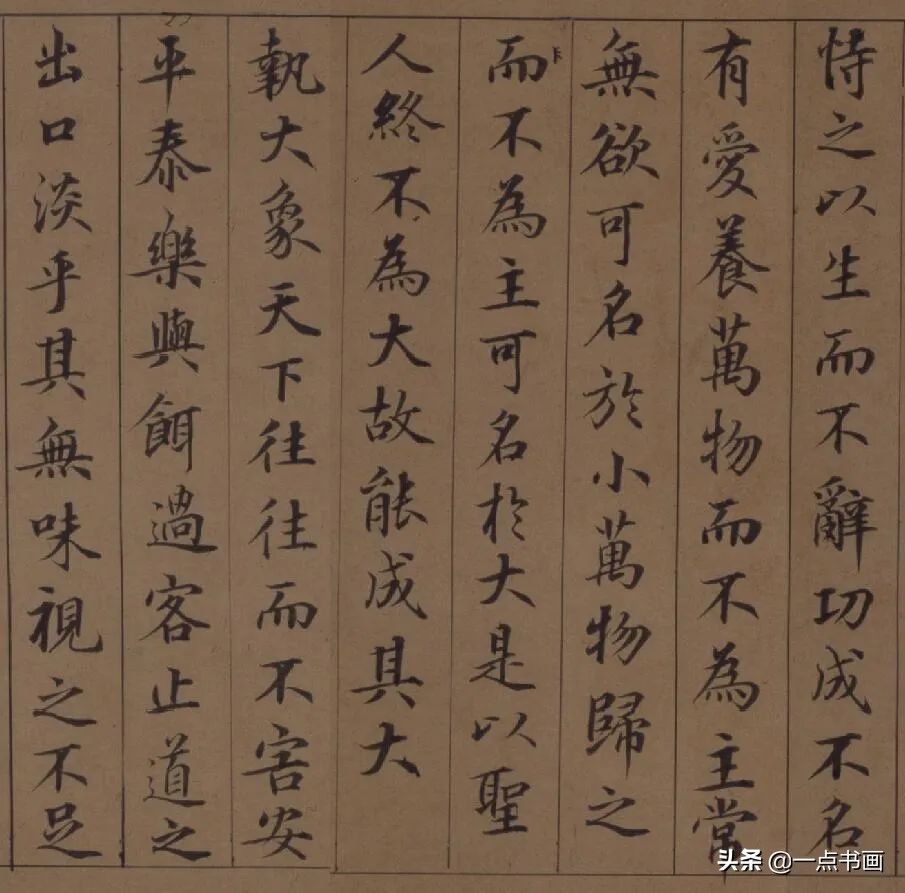 恃之以生而不辭切成不名
有愛養萬物而不為主常
無欲可名於小萬物歸之
而不為主可名於大是以聖
人終不為大故能成其大
執大象天下往往而不害安
平泰樂與餌過客止道之
出口淡乎其無味視之不足
头条 @一点书画